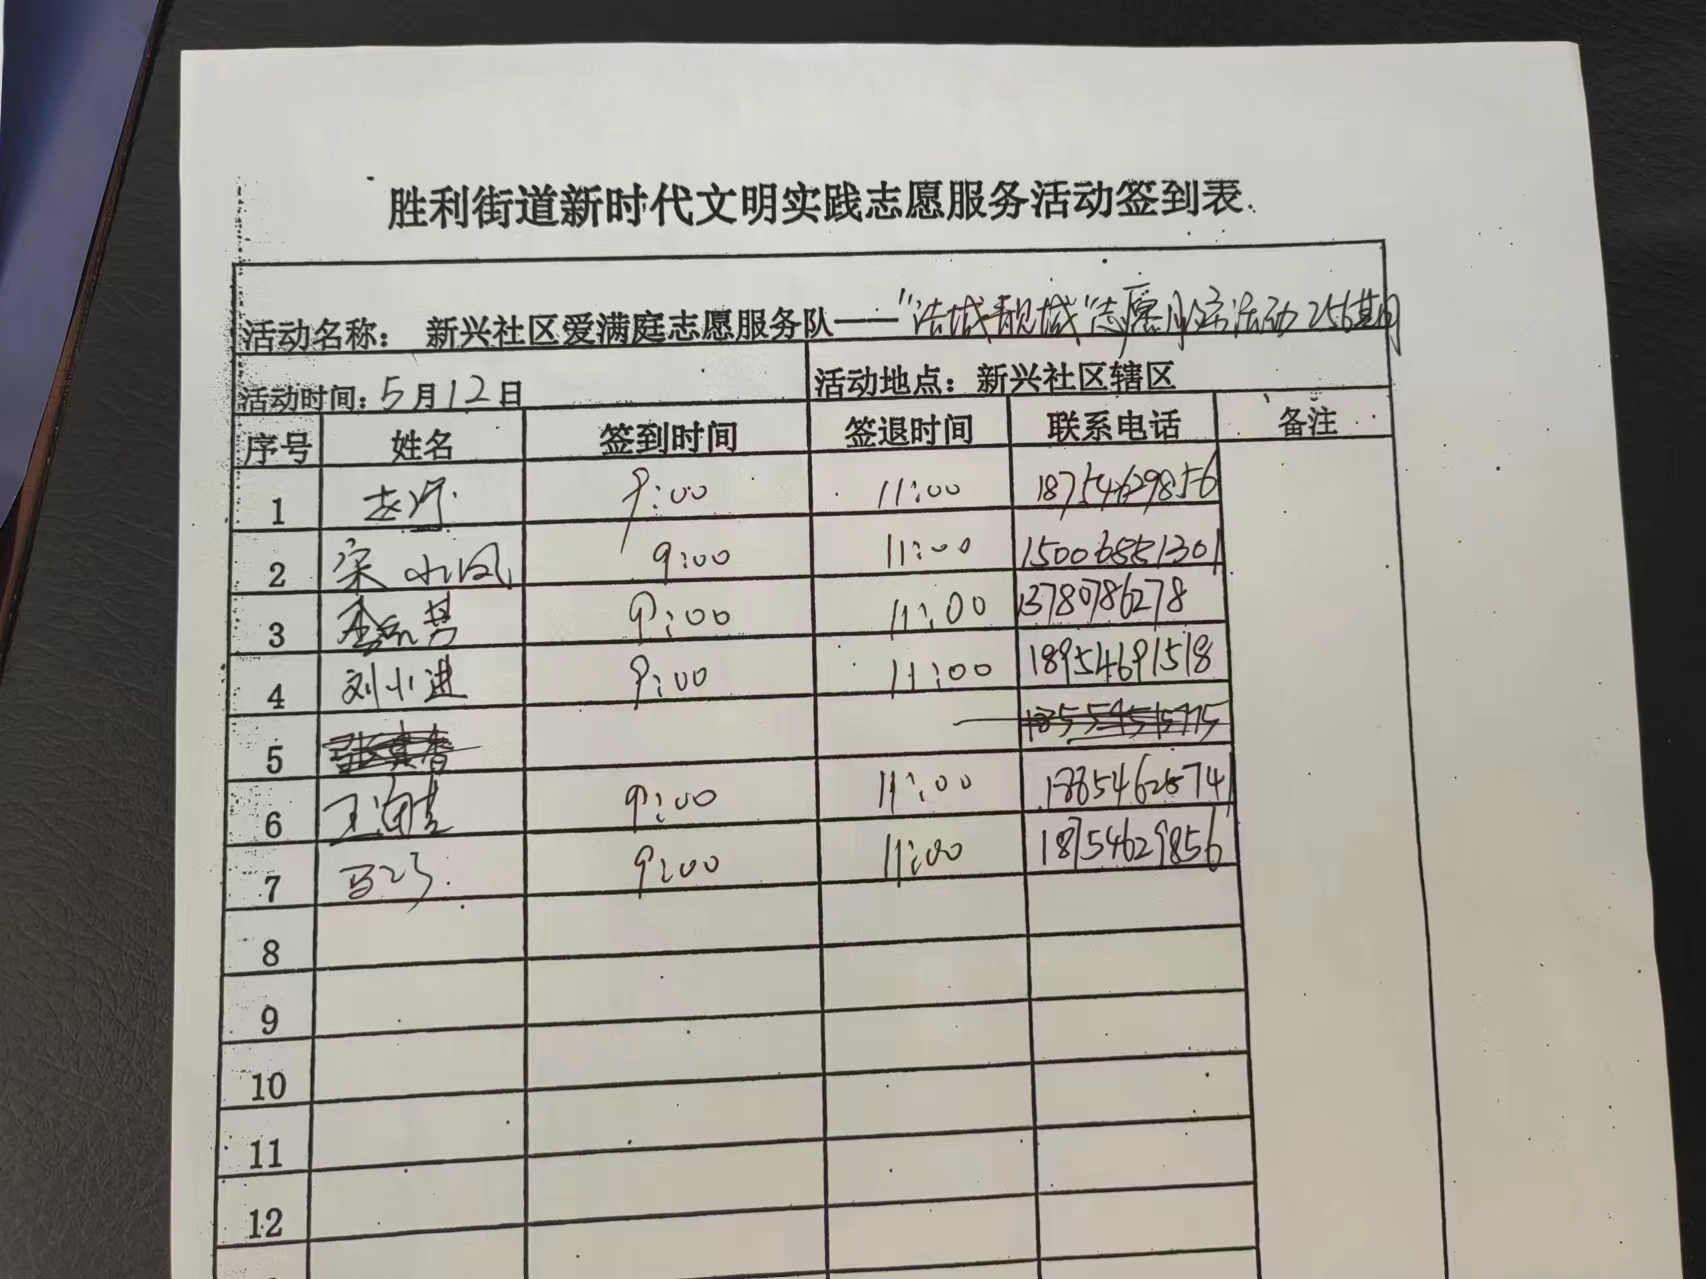 胜利街道新时代文明实践志愿服务活动签到表
活动名称： 新兴社区爱满庭志愿服务队——“洁城靓城”志愿服务活动256期
活动时间：5月12日 活动地点：新兴社区辖区
序号 姓名 签到时间 签退时间 联系电话 备注
1 9:00 11:00 18754629856
2 宋小凤 9:00 11:00 15006551301
3 9:00 11:00 13780786278
4 刘小进 9:00 11:00 18954691518
5
6 9:00 11:00
7 9:00 11:00 18754629856
8
9
10
11
12